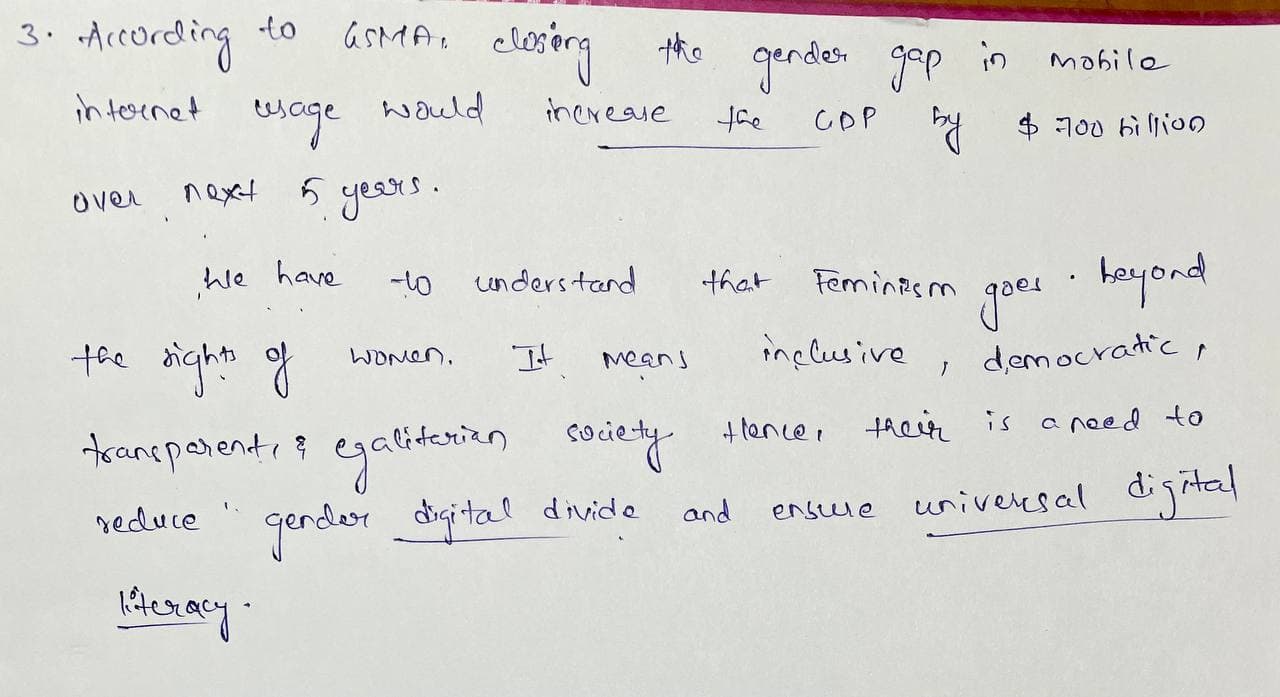 3. According to GSMA, closing the gender gap in mobile
internet usage would increase the GDP by $ 700 billion
over next 5 years.
We have to understand that Feminism goes beyond
the rights of women. It means inclusive, democratic,
transparent, & egalitarian society Hence, their is a need to
reduce gender digital divide and ensure universal digital
literacy.